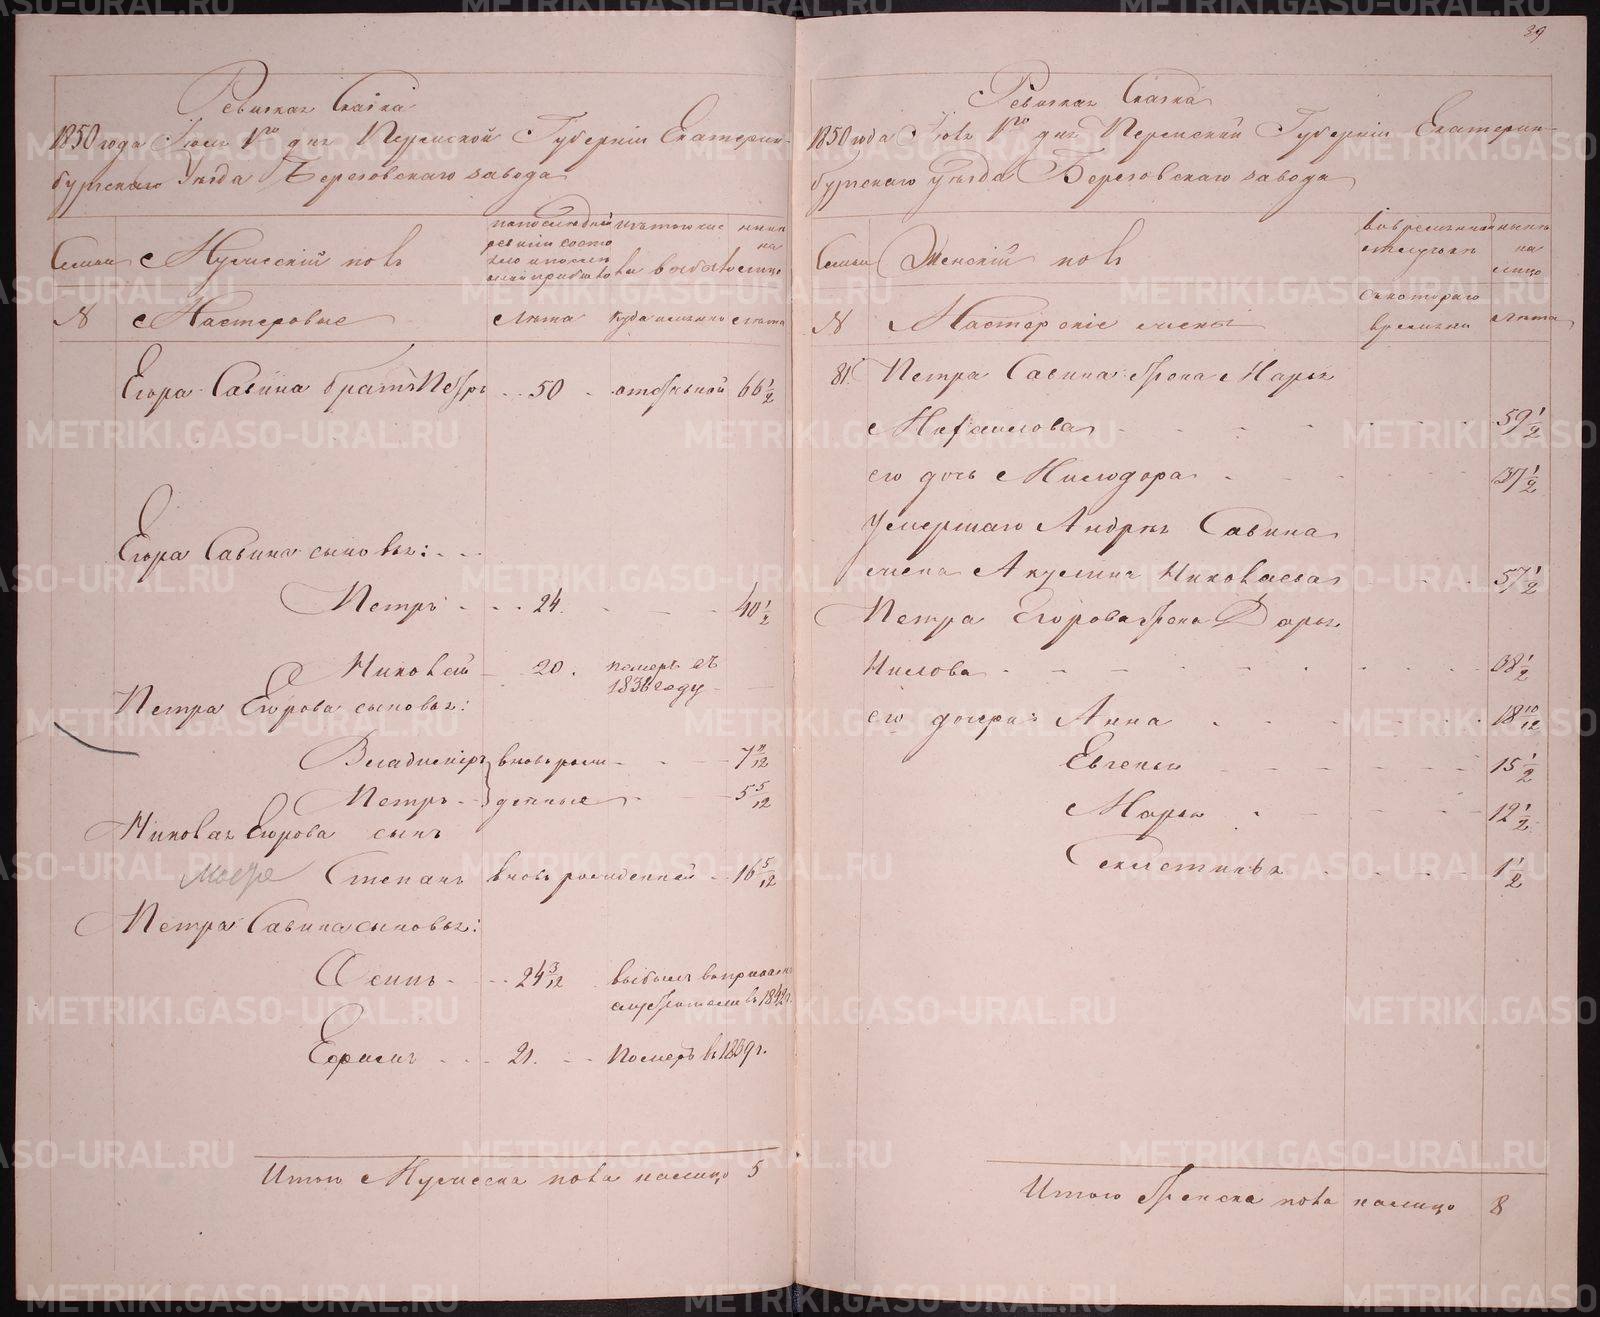 Ревизская Сказка
1850 года Июля 1го дня Пермской Губерніи Екатерин-
бургскаго Уѣзда Березовскаго завода
Семьи
Мужескій полъ
по последней
ревизіи состо
яло и после
оной прибыло
изъ того чис
ла выбыло
нынѣ
на
лицо
№
Мастеровые
Лѣта
Куда именно
Лѣта
Егора Савина братъ Петръ 50 отдѣльной 66 1/2
Егора Савина сыновья:
Петръ 24. 40 1/2
Николай 20. померъ въ
1836 году
Петра Егорова сыновья:
Владимиръ вновь рож 7 11/12
Петръ денные 5 5/12
Николая Егорова сынъ
Степанъ вновь рожденной 16 5/12
Петра Савина сыновья:
Осипъ 24 3/12 выбылъ
въ 1842 г.
Ефимъ 21. Померъ въ 1839 г.
Итого Мужеска пола налицо 5
39
Ревизская Сказка
1850 года Июля 1го дня Пермской Губерніи Екатерин-
бургскаго уѣзда Березовскаго завода
Семьи
Женскій полъ
во временной
отлучкѣ
нынѣ
на
лицо
№
Мастерскіе жены
съ котораго
времени
Лѣта
81. Петра Савина жена Марья
Михайлова 59 1/2
его дочь Милодора 37 1/2
Умершаго Андрея Савина
жена Акулина Николаева 57 1/2
Петра Егорова жена Дарья
Нилова 38 1/2
его дочери: Анна 18 10/12
Евгенья 15 1/2
Марья 12 1/2
Секлетинья 1 1/2
Итого Женска пола налицо 8
METRIKI.GASO-URAL.RU